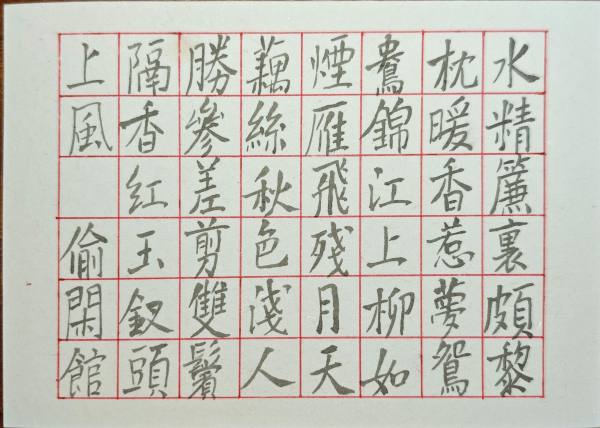 水精簾裏頗黎
枕暖香惹夢鴛
鴦錦江上柳如
煙雁飛殘月天
藕絲秋色淺人
勝參差剪雙鬢
隔香紅玉釵頭
上風 偷閑館